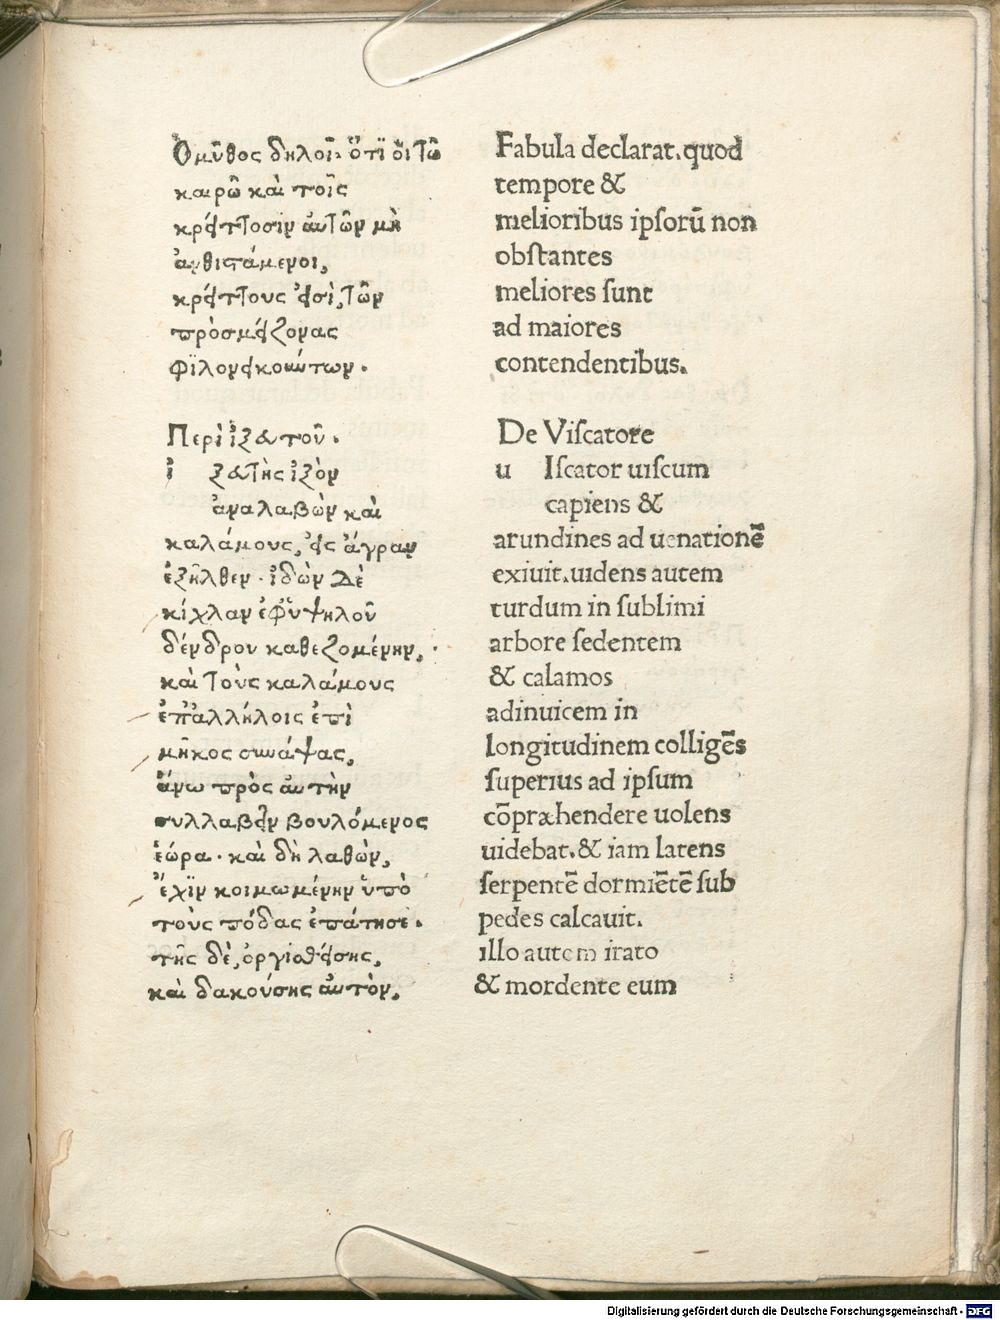 Ὁ μῦθος δηλοῖ· ὅτϊ οἱ τῶ
καιρῶ καὶ τοῖς
κρείττοσιν ἀυτῶν μὴ
ἀνθιστάμενοι,
κρείττους ἐισὶ, τῶν
πρὸσμείζονας
φϊλονεικούντων.
Περὶ ἰξευτοῦ.
ἰ ξευτὴς ἰξὸν
ἀναλαβὼν καὶ
καλάμους, εἰς ἄγραν
ἐξῆλθεν · ἰδὼν Δὲ
κίχλαν ἐφ' ὑψηλοῦ
δένδρου καθεζομένην,
καὶ τοὺς καλάμους
ἐπ' ἀλλήλοις ἐπὶ
μῆκος συνάψας,
ἄνω πρὸς ἀυτὴν
συλλαβεῖν βουλόμενος
ἑώρα · καὶ δὴ λαθὼν,
ἔχϊν κοιμωμένην ὑπὸ
τοὺς πόδας ἐπάτησε.
τῆς δὲ, ὀργισθείσης,
καὶ δακούσης ἀυτὸν,
Fabula declarat. quod
tempore &
melioribus ipsorū non
obstantes
meliores sunt
ad maiores
contendentibus.
De Viscatore
u Iscator uiscum
capiens &
arundines ad uenationē
exiuit. uidens autem
turdum in sublimi
arbore sedentem
& calamos
adinuicem in
longitudinem colligēs
superius ad ipsum
cōpræhendere uolens
uidebat. & iam latens
serpentē dormiētē sub
pedes calcauit.
illo autem irato
& mordente eum
Digitalisierung gefördert durch die Deutsche Forschungsgemeinschaft - DFG